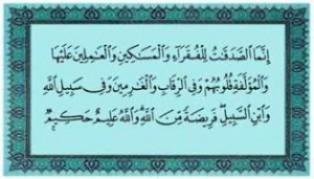 إِنَّمَا الصَّدَقَٰتُ لِلْفُقَرَآءِ وَالْمَسَٰكِينِ وَالْعَٰمِلِينَ عَلَيْهَا
وَالْمُؤَلَّفَةِ قُلُوبُهُمْ وَفِي الرِّقَابِ وَالْغَٰرِمِينَ وَفِي سَبِيلِ اللَّهِ
وَابْنِ السَّبِيلِ فَرِيضَةً مِّنَ اللَّهِ وَاللَّهُ عَلِيمٌ حَكِيمٌ